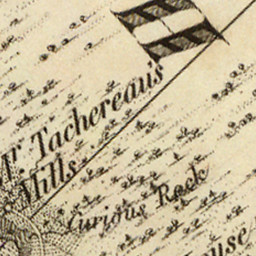 Tachereau's
Mills
Curious Rock